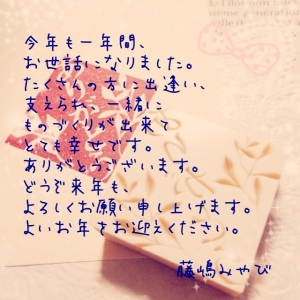 今年も一年間、
お世話になりました。
たくさんの方に出逢い、
支えられ、一緒に
ものづくりが出来て
とても幸せです。
ありがとうございます。
どうぞ来年も、
よろしくお願い申し上げます。
よいお年をお迎えください。
藤嶋みやび